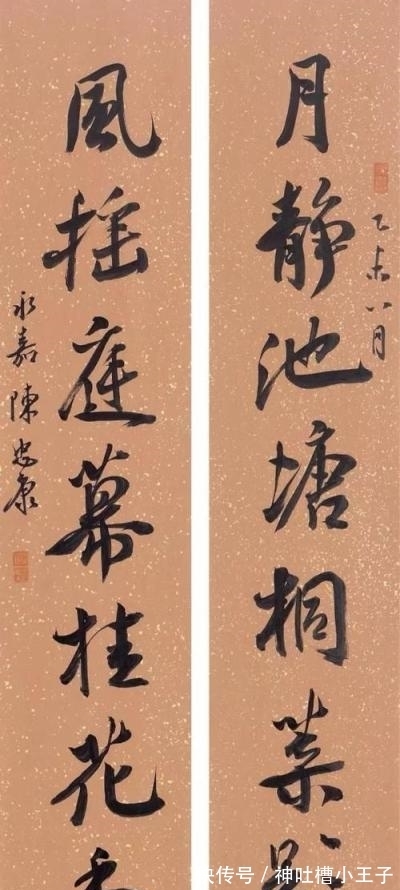 乙未八月
月靜池塘桐葉
風摇庭幕桂花
永嘉陳忠康
快传号 / 神吐槽小王子